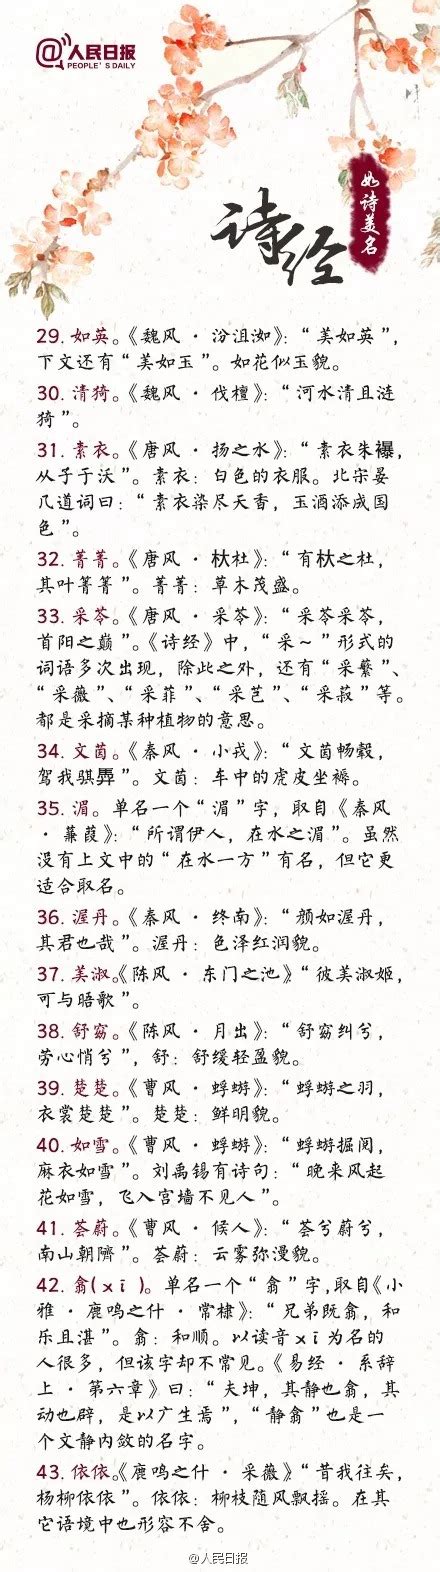 @人民日报
PEOPLE'S DAILY
如诗美名
诗经
29. 如英。《魏风·汾沮洳》：“美如英”，
下文还有“美如玉”。如花似玉貌。
30. 清猗。《魏风·伐檀》：“河水清且涟
猗”。
31. 素衣。《唐风·扬之水》：“素衣朱襮，
从子于沃”。素衣：白色的衣服。北宋晏
几道词曰：“素衣染尽天香，玉酒添成国
色”。
32. 菁菁。《唐风·杕杜》：“有杕之杜，
其叶菁菁”。菁菁：草木茂盛。
33. 采苓。《唐风·采苓》：“采苓采苓，
首阳之巅”。《诗经》中，“采～”形式的
词语多次出现，除此之外，还有“采蘩”、
“采薇”、“采菲”、“采芑”、“采菽”等。
都是采摘某种植物的意思。
34. 文茵。《秦风·小戎》：“文茵畅毂，
驾我骐馵”。文茵：车中的虎皮坐褥。
35. 湄。单名一个“湄”字，取自《秦风
·蒹葭》：“所谓伊人，在水之湄”。虽然
没有上文中的“在水一方”有名，但它更
适合取名。
36. 渥丹。《秦风·终南》：“颜如渥丹，
其君也哉”。渥丹：色泽红润貌。
37. 美淑。《陈风·东门之池》“彼美淑姬，
可与晤歌”。
38. 舒窈。《陈风·月出》：“舒窈纠兮，
劳心悄兮”，舒：舒缓轻盈貌。
39. 楚楚。《曹风·蜉蝣》：“蜉蝣之羽，
衣裳楚楚”。楚楚：鲜明貌。
40. 如雪。《曹风·蜉蝣》：“蜉蝣掘阅，
麻衣如雪”。刘禹锡有诗句：“晚来风起
花如雪，飞入宫墙不见人”。
41. 荟蔚。《曹风·候人》：“荟兮蔚兮，
南山朝隮”。荟蔚：云雾弥漫貌。
42. 翕(xī)。单名一个“翕”字，取自《小
雅·鹿鸣之什·常棣》：“兄弟既翕，和
乐且湛”。翕：和顺。以读音xī为名的
人很多，但该字却不常见。《易经·系辞
上·第六章》曰：“夫坤，其静也翕，其
动也辟，是以广生焉”，“静翕”也是一
个文静内敛的名字。
43. 依依。《鹿鸣之什·采薇》“昔我往矣，
杨柳依依”。依依：柳枝随风飘摇。在其
它语境中也形容不舍。
@人民日报